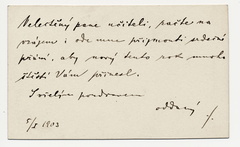 Velectěný pane učiteli, račte na
vzájem i ode mne přijmouti srdečné
přání, aby nový tento rok mnoho
štěstí Vám přinesl.
S úctou pozdravem
oddaný
5/I 1903